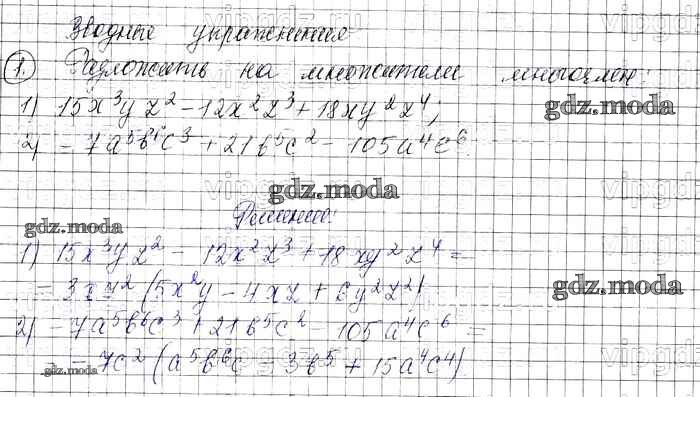 Вводные упражнения
1. Разложить на множители многочлен:
1) 15x³yz² - 12x²z³ + 18xy²z⁴;
gdz.moda
2) -7a⁵b⁶c³ + 21b⁵c² - 105a⁴c⁶
gdz.moda
Решение:
gdz.moda
1) 15x³yz² - 12x²z³ + 18xy²z⁴ =
= 3xz² (5x²y - 4xz + 6y²z²)
gdz.moda
2) -7a⁵b⁶c³ + 21b⁵c² - 105a⁴c⁶ =
= -7c² (a⁵b⁶c - 3b⁵ + 15a⁴c⁴)
gdz.moda